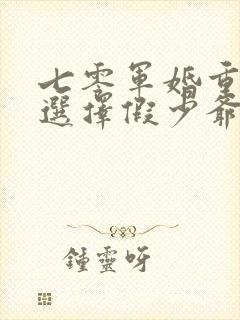 七零軍婚重
選擇假少爺
鍾靈呀